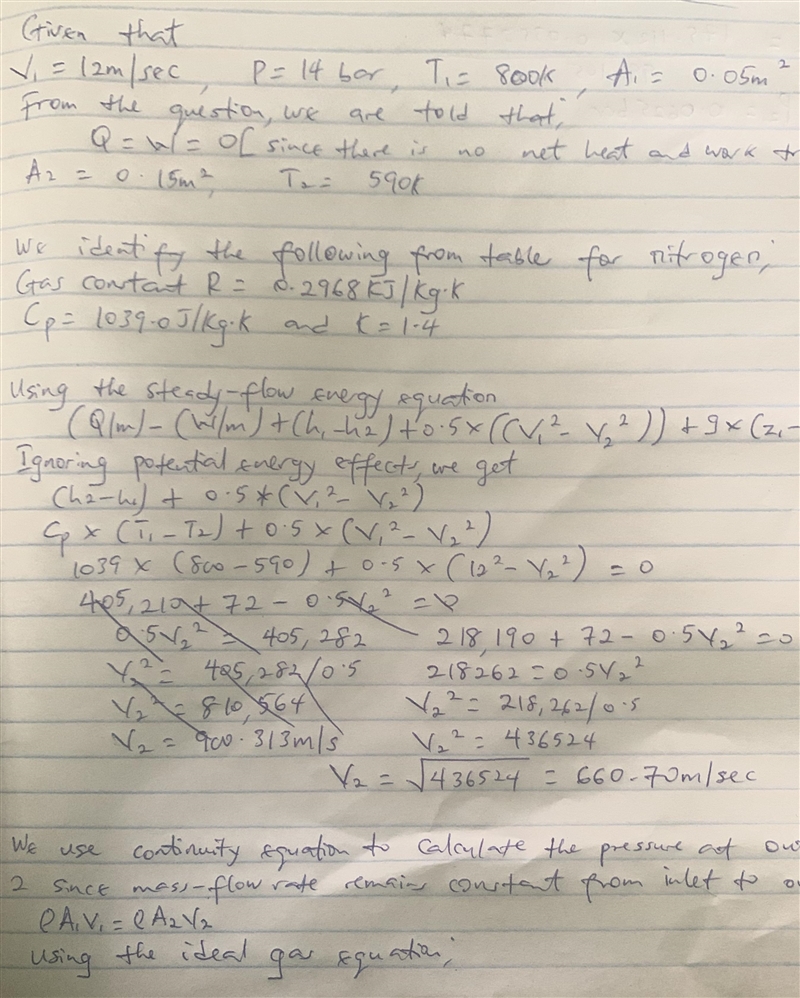 Given that
V₁ = 12m/sec, P = 14 bar, T₁ = 800K, A₁ = 0.05m²
From the question, we are told that;
Q = W = 0[ since there is no net heat and work tr
A2 = 0.15m², T2 = 590K
We identify the following from table for nitrogen;
Gas constant R = 0.2968KJ/Kg.K
Cp = 1039.0J/Kg.K and K = 1.4
Using the steady-flow energy equation
(Q/m) - (W/m) + (h₁ - h2) + 0.5 × ((V₁² - V₂²)) + g × (z₁ -
Ignoring potential energy effects, we get
(h2-h₁) + 0.5 * (V₁² - V₂²)
Cp × (T₁ - T₂) + 0.5 × (V₁² - V₂²)
1039 × (800 - 590) + 0.5 × (12² - V₂²) = 0
405,210 + 72 - 0.5V₂² = 0
0.5V₂² = 405,282 218,190 + 72 - 0.5V₂² = 0
V₂² = 405,282/0.5 218262 = 0.5V₂²
V₂² = 810,564 V₂² = 218,262/0.5
V₂ = 900.313m/s V₂² = 436524
V₂ = √436524 = 660.70m/sec
We use continuity equation to calculate the pressure at ou
2 since mass-flow rate remains constant from inlet to o
ρA₁V₁ = ρA₂V₂
Using the ideal gas equation;